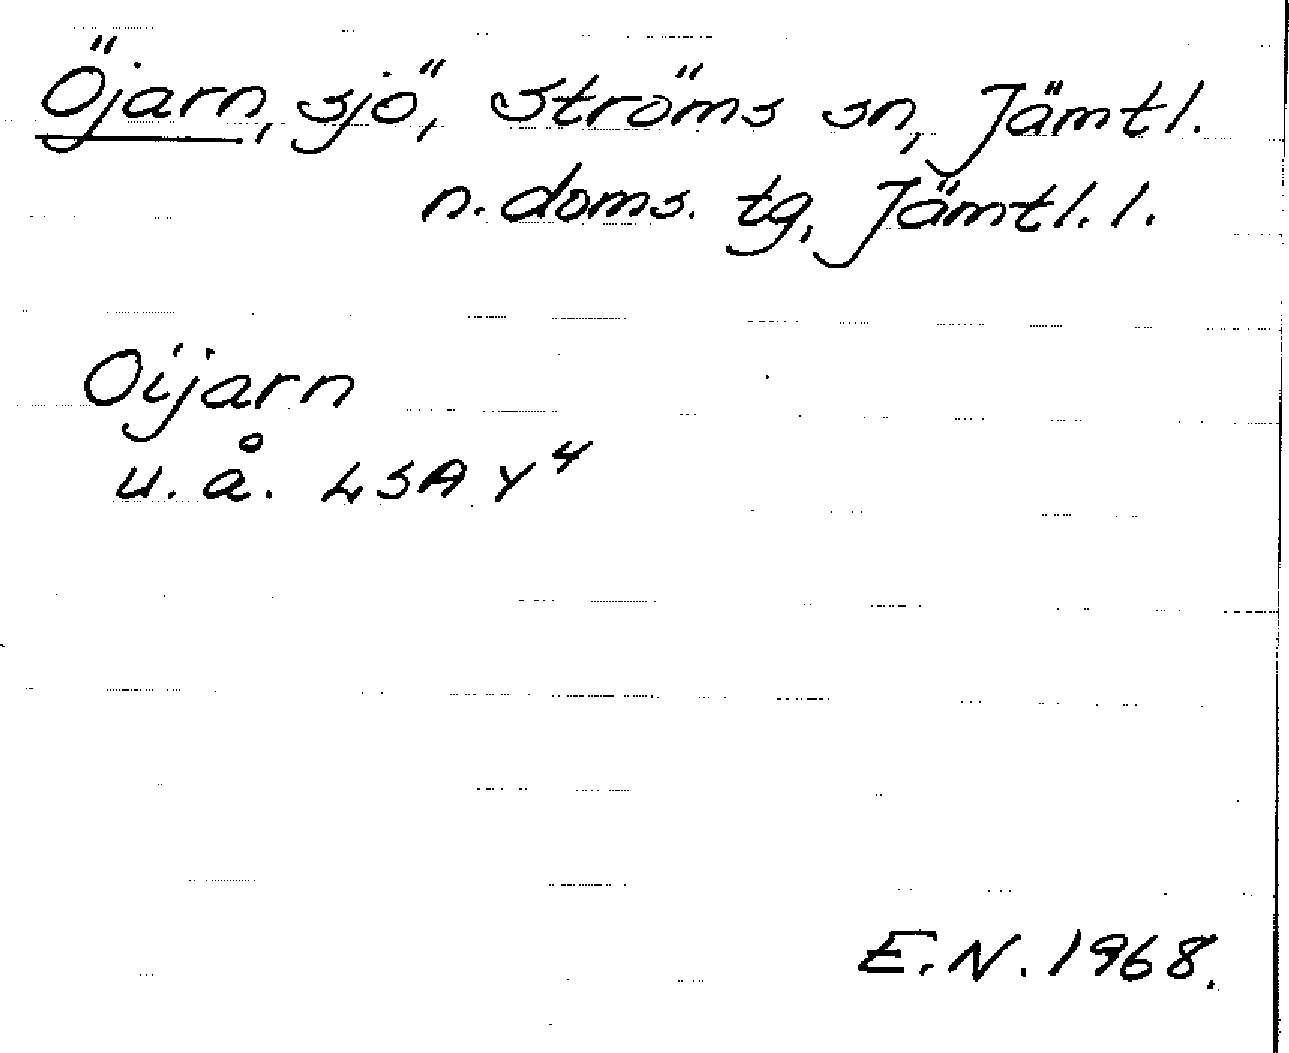 Öjarn, sjö, Ströms sn, Jämtl.
n. doms. tg, Jämtl. l.
Oijarn
u. å. LSA Y⁴
E.N. 1968.